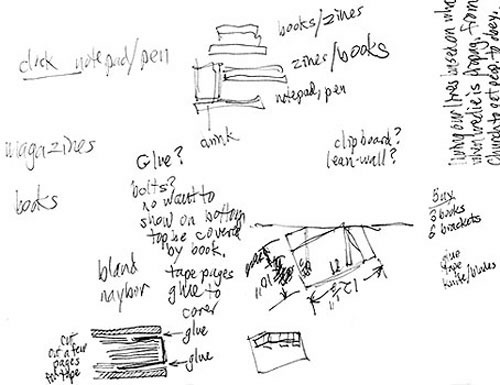 books/zines
click notepad/pen
zines/books
notepad, pen
drink
magazines
Glue?
clipboard?
lean-wall?
books
bolts?
no want to
show on bottom
top be covered
by book.
Buy
3 books
6 brackets
glue
tape
knife/blades
bland
naybor
tape pages
glue to
cover
12 1/2"
10"
cut
out a few
pages
for tape
glue
glue
living our lives based on what